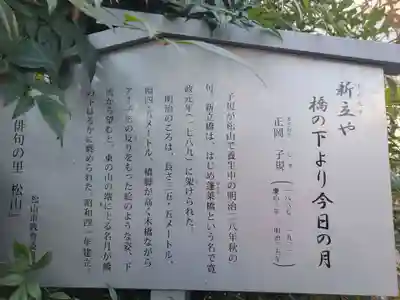 新立や
橋の下より今日の月
正岡 子規
子規が松山で養生中の明治二八年秋の
句。新立橋は、はじめ蓬莱橋という名で寛
政元年(一七八九)に架けられた。
明治のころは、長さ三五・五メートル、
幅四・五メートル、橋脚が高く木橋ながら
アーチ型の反りをもった絵のような姿、下
流から望むと、東の山の端に上る名月が橋
の下に眺められた。昭和四一年建立。
『俳句の里 松山』
松山市教育